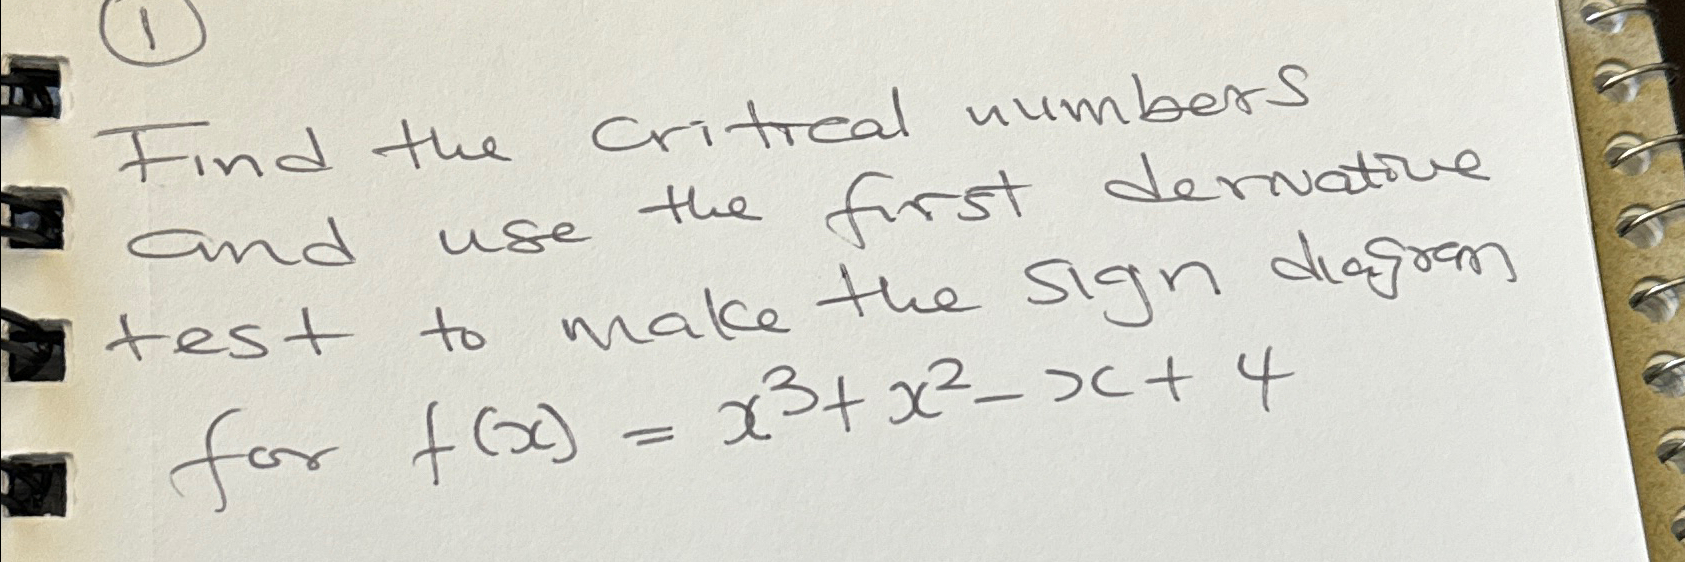 1
Find the critical numbers
and use the first derivative
test to make the sign diagram
for f(x) = x³ + x² - x + 4